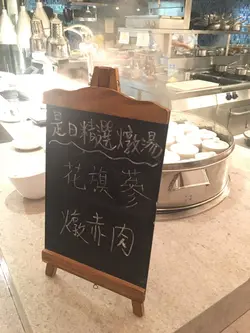 是日精選燉湯
花旗蔘
燉赤肉